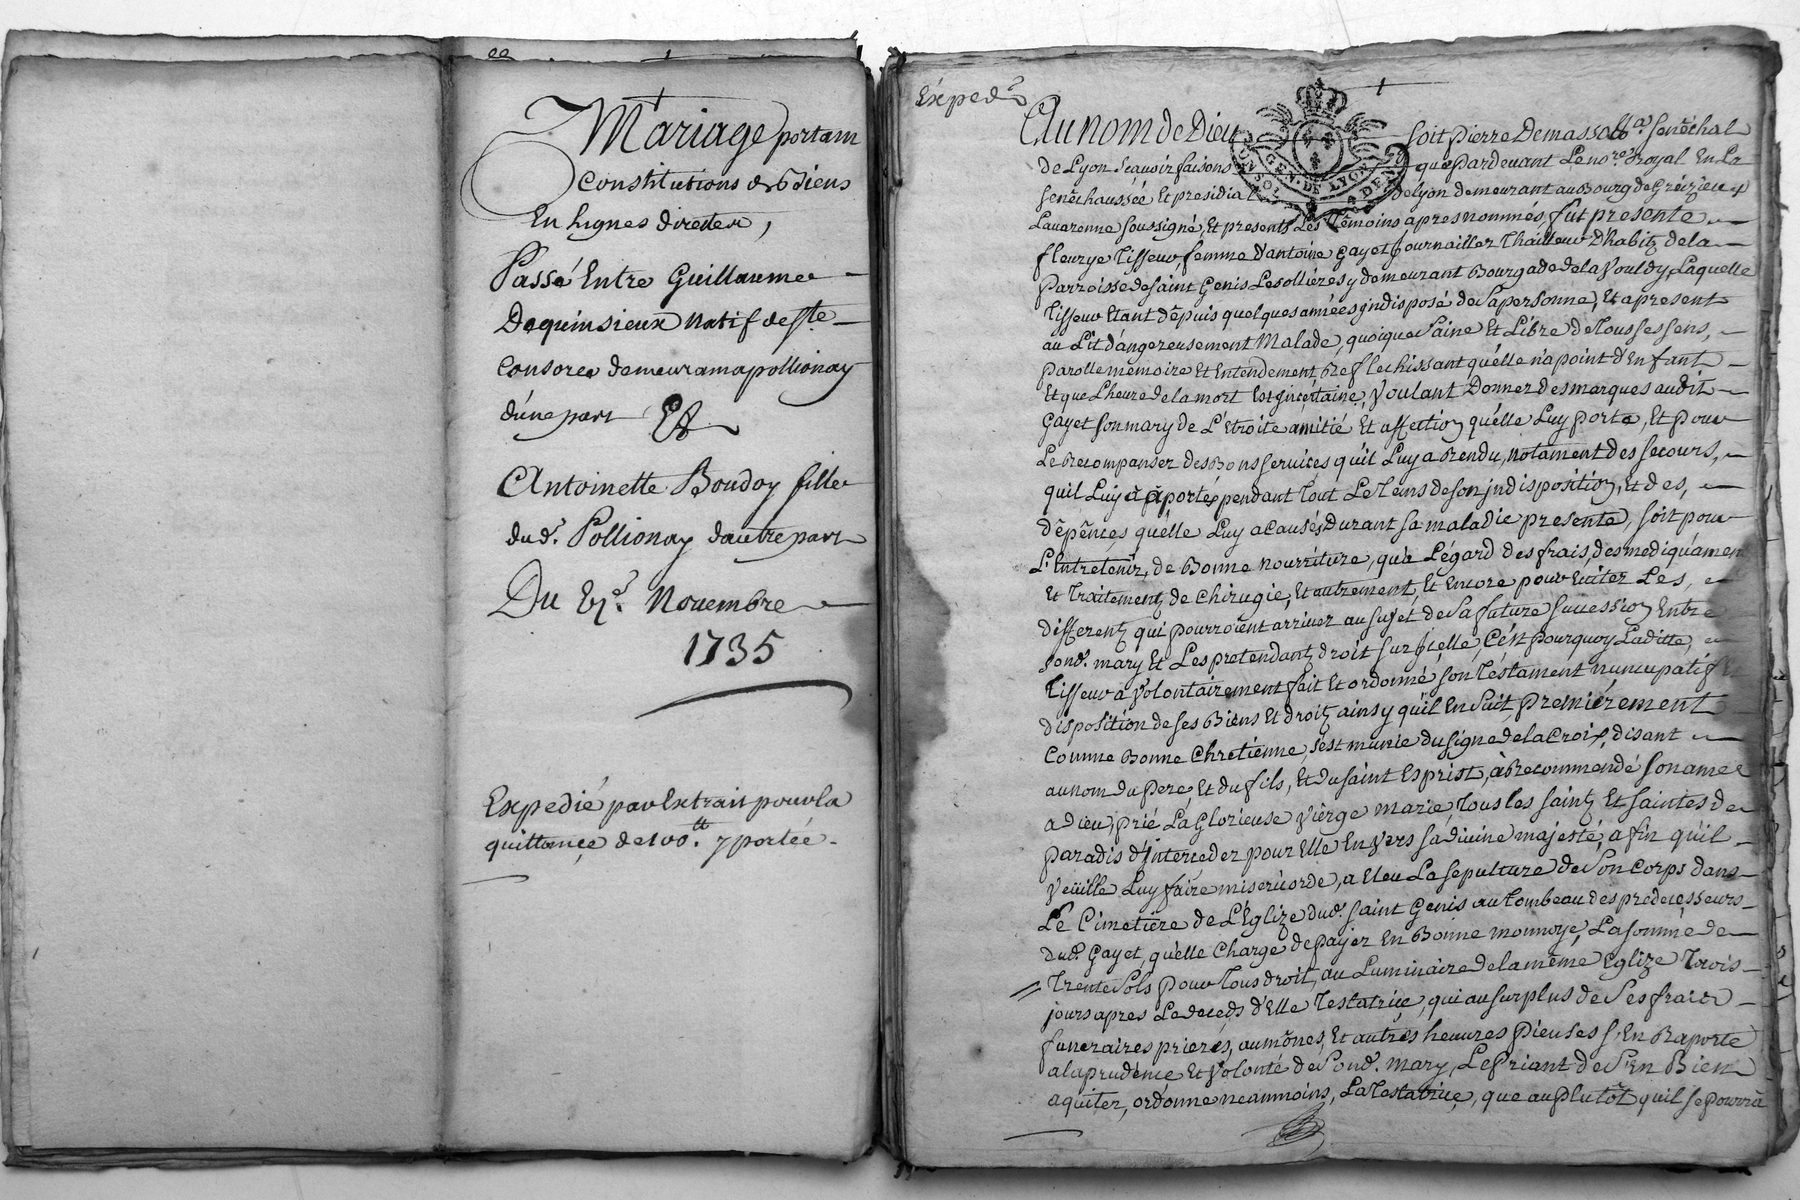 Mariage portant
Constitutions de Biens
En Lignes directes,
Passé Entre Guillaume
Dequinsieux Natif de Ste
Consorce demeurant a pollionay
d'une part Et
Antoinette Boudoy fille
dud. Pollionay d'autre part
Du Novembre
1735
Expedié par Extrait pour la
quittance de 100.tt y portée.
Expedé
Au nom de Dieu soit Pierre De massoa.. Senechal
de Lyon scavoir faisons que pardevant Le no.re Royal En La
senéchaussée Et presidial de Lyon demeurant au Bourg de Grézieu
Lavarenne soussigné, Et presents Les Temoins apres nommés, fut presente
fleurye Tisseur, femme D'antoine Gayet Journaillier Thailleur D'habitz de la
Parroisse de saint Genis Lesollieres y demeurant Bourgade de la Vouldy, Laquelle
Tisseur Etant dépuis quelques années indisposé de sa personne, Et a present
au Lit dangereusement Malade, quoique saine Et Libre de Tous ses sens,
parolle mémoire Et Entendement, Reflechissant quélle n'a point d'Enfant
Et que L'heure de la mort Est incertaine, Voulant Donner des marques audit
Gayet son mary de L'étroite amitié Et affection quélle Luy porte, Et pour
Le Recompanser des Bons services quil Luy a Rendu, notament des secours,
quil Luy à àportés pendant Tout Le Tems de son jndisposition, Et des,
dépences quélle Luy a causés durant sa maladie presente, soit pour
L'Entretenir, de Bonne nourriture, qu'a Légard des frais, des mediquamen
Et Traitementz de chirugie, Et autrement, Et Encore pour Eviter Les,
differentz qui pourroient arriver au sujet de sa future succession Entre
sond. mary Et Les pretendantz droit sur jcelle, C'est pourquoy Laditte,
Tisseur a volontairement fait Et ordonné son Téstament nuncupatif
disposition de ses Biens Et droitz ainsy qu'il En suit, premiérement
Comme Bonne Chretienne, s'est munie du signe de la Croix, disant
au nom du Pere, Et du fils, Et du saint Esprist, à Recommendé son ame
a Dieu, prié La Glorieuse vierge marie, Tous les saintz Et saintes de
paradis d'jnterceder pour Elle Envers sa divine majesté, afin qu'il
veüille Luy faire misericorde, a Eleu La sepulture de son Corps dans
Le Cimetiere de L'Eglize dud. saint Genis au Tombeau des prédecesseurs
dud. Gayet, quélle Charge de payer En Bonne monnoye, La somme de
Trente sols pour Tous droit, au Luminaire de la même Eglize Trois
jours apres Le decéds d'Elle Testatrice, qui au surplus de ses frais
funeraires prieres, aumônes, Et autres heuvres Pieuses s'En Raporte
a la prudence Et volonté de sond. mary, Le Priant de s'En Bien
aquiter, ordonne neanmoins, La Testatrice, que au Plutôt quil se pourra